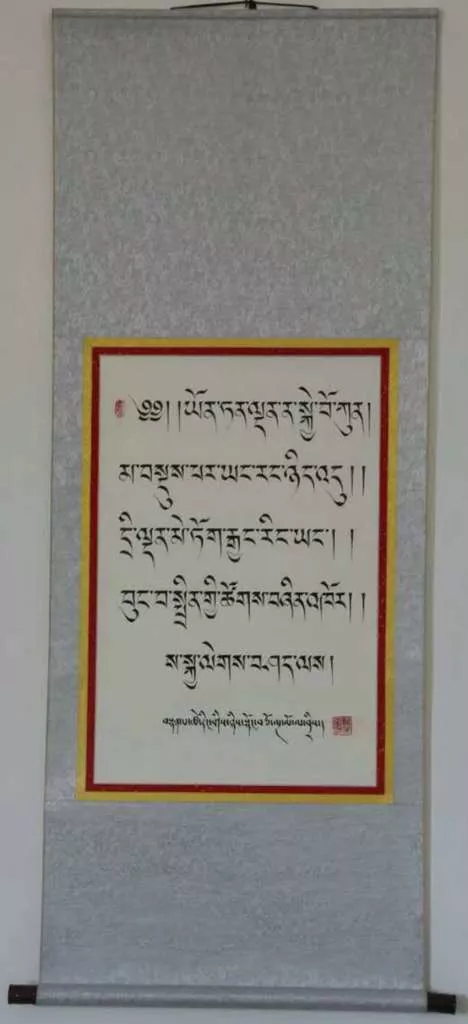 ༄༅། །ཡོན་ཏན་ལྡན་ན་སྐྱེ་བོ་ཀུན།
མ་བསྡུས་པར་ཡང་རང་ཉིད་འདུ། །
དྲི་ལྡན་མེ་ཏོག་རྒྱང་རིང་ཡང་། །
བུང་བ་སྤྲིན་གྱི་ཚོགས་བཞིན་འཁོར། །
ས་སྐྱ་ལེགས་བཤད་ལས།